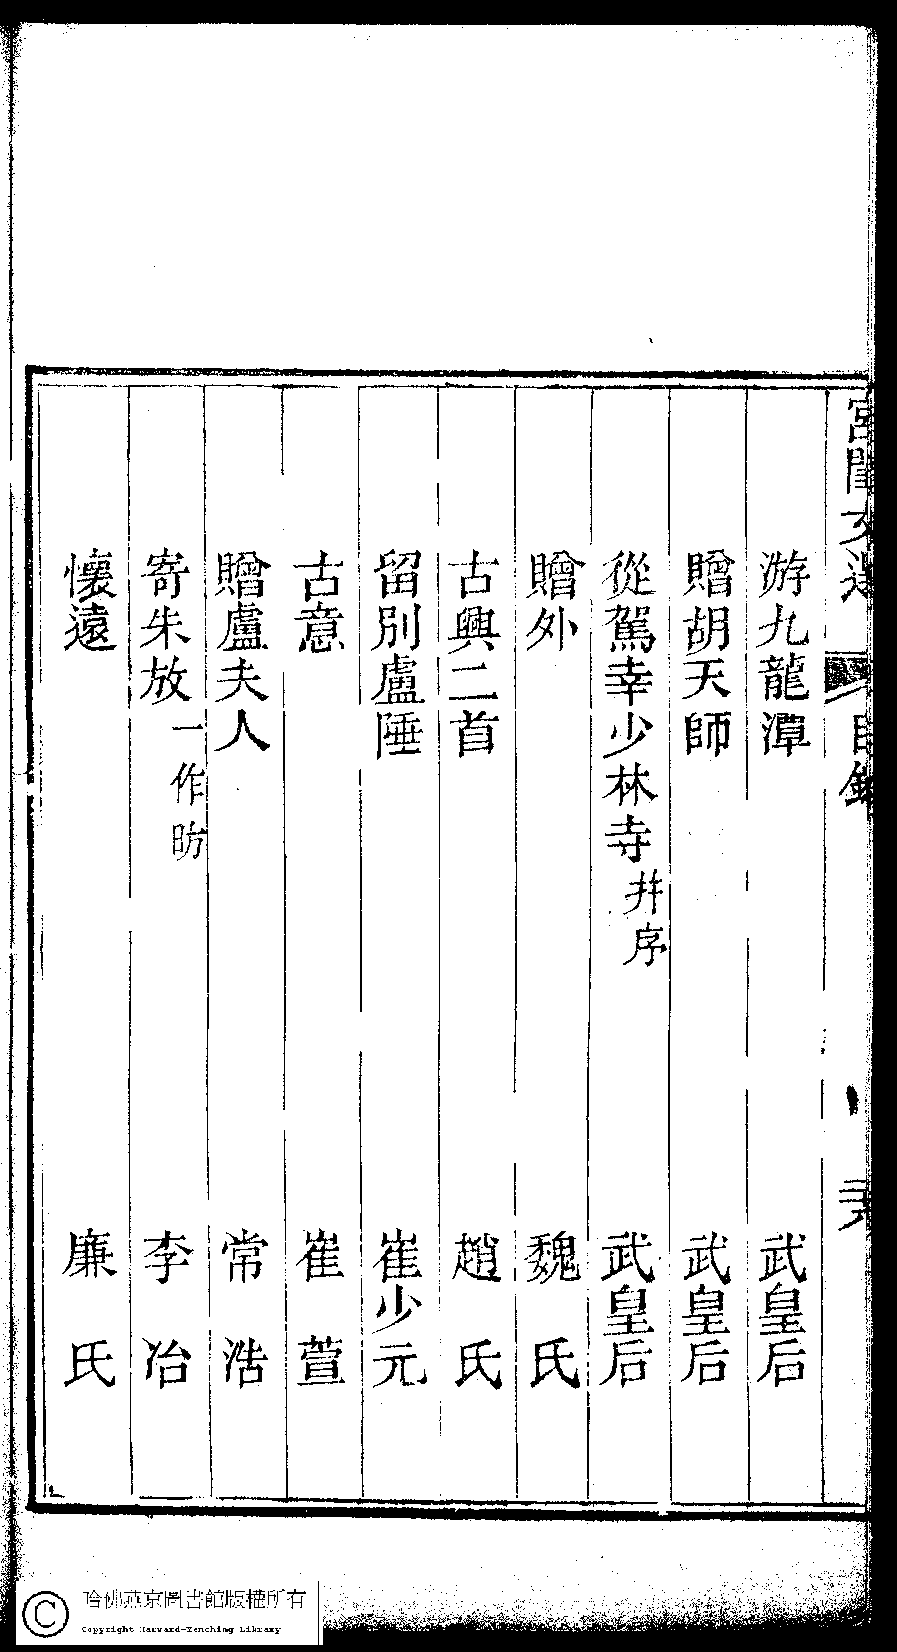 宮閨文選 目錄
游九龍潭 武皇后
贈胡天師 武皇后
從駕幸少林寺幷序 武皇后
贈外 魏氏
古興二首 趙氏
留別盧陲 崔少元
古意 崔萱
贈盧夫人 常浩
寄朱放一作昉 李冶
懷遠 廉氏
哈佛燕京圖書館版權所有
Copyright Harvard-Yenching Library